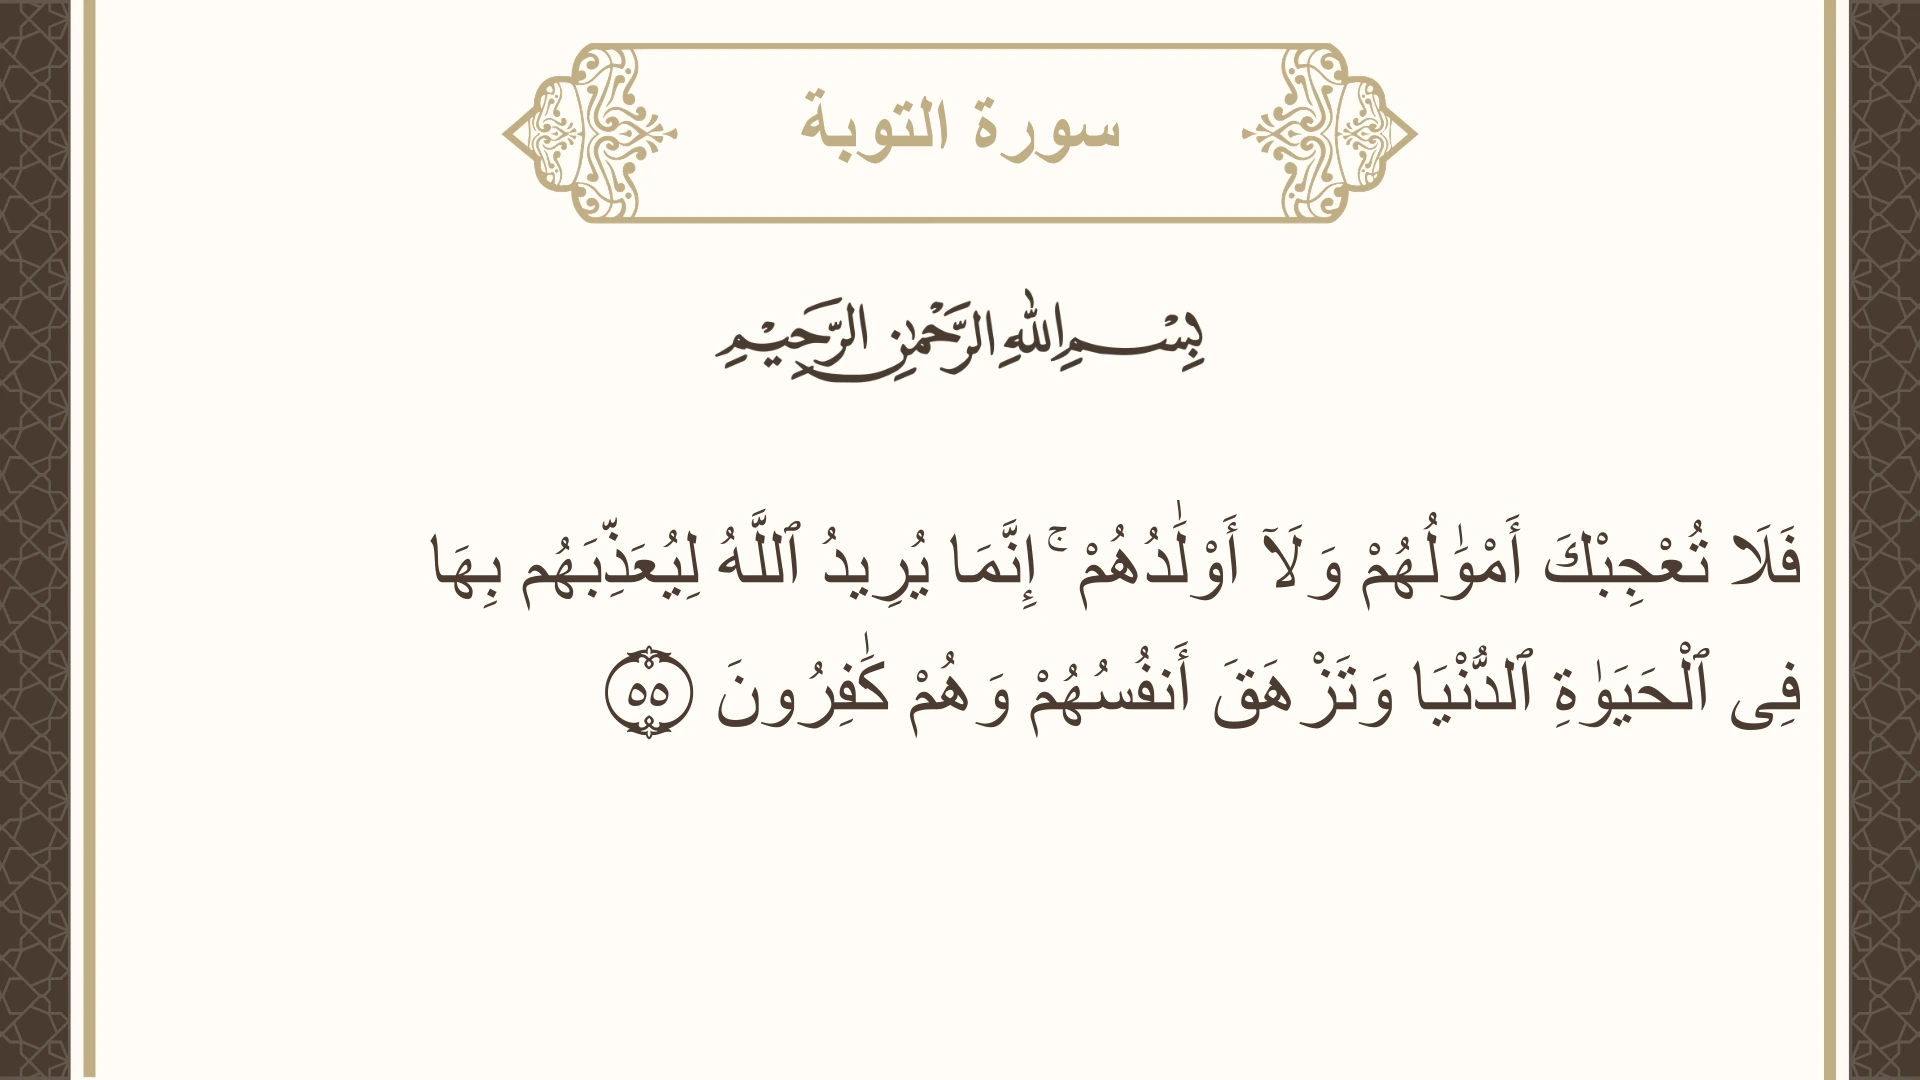 سورة التوبة
بِسْمِ اللهِ الرَّحْمٰنِ الرَّحِيْمِ
فَلَا تُعْجِبْكَ أَمْوَٰلُهُمْ وَلَآ أَوْلَٰدُهُمْ ۚ إِنَّمَا يُرِيدُ ٱللَّهُ لِيُعَذِّبَهُم بِهَا
فِى ٱلْحَيَوٰةِ ٱلدُّنْيَا وَتَزْهَقَ أَنفُسُهُمْ وَهُمْ كَٰفِرُونَ ۝٥٥